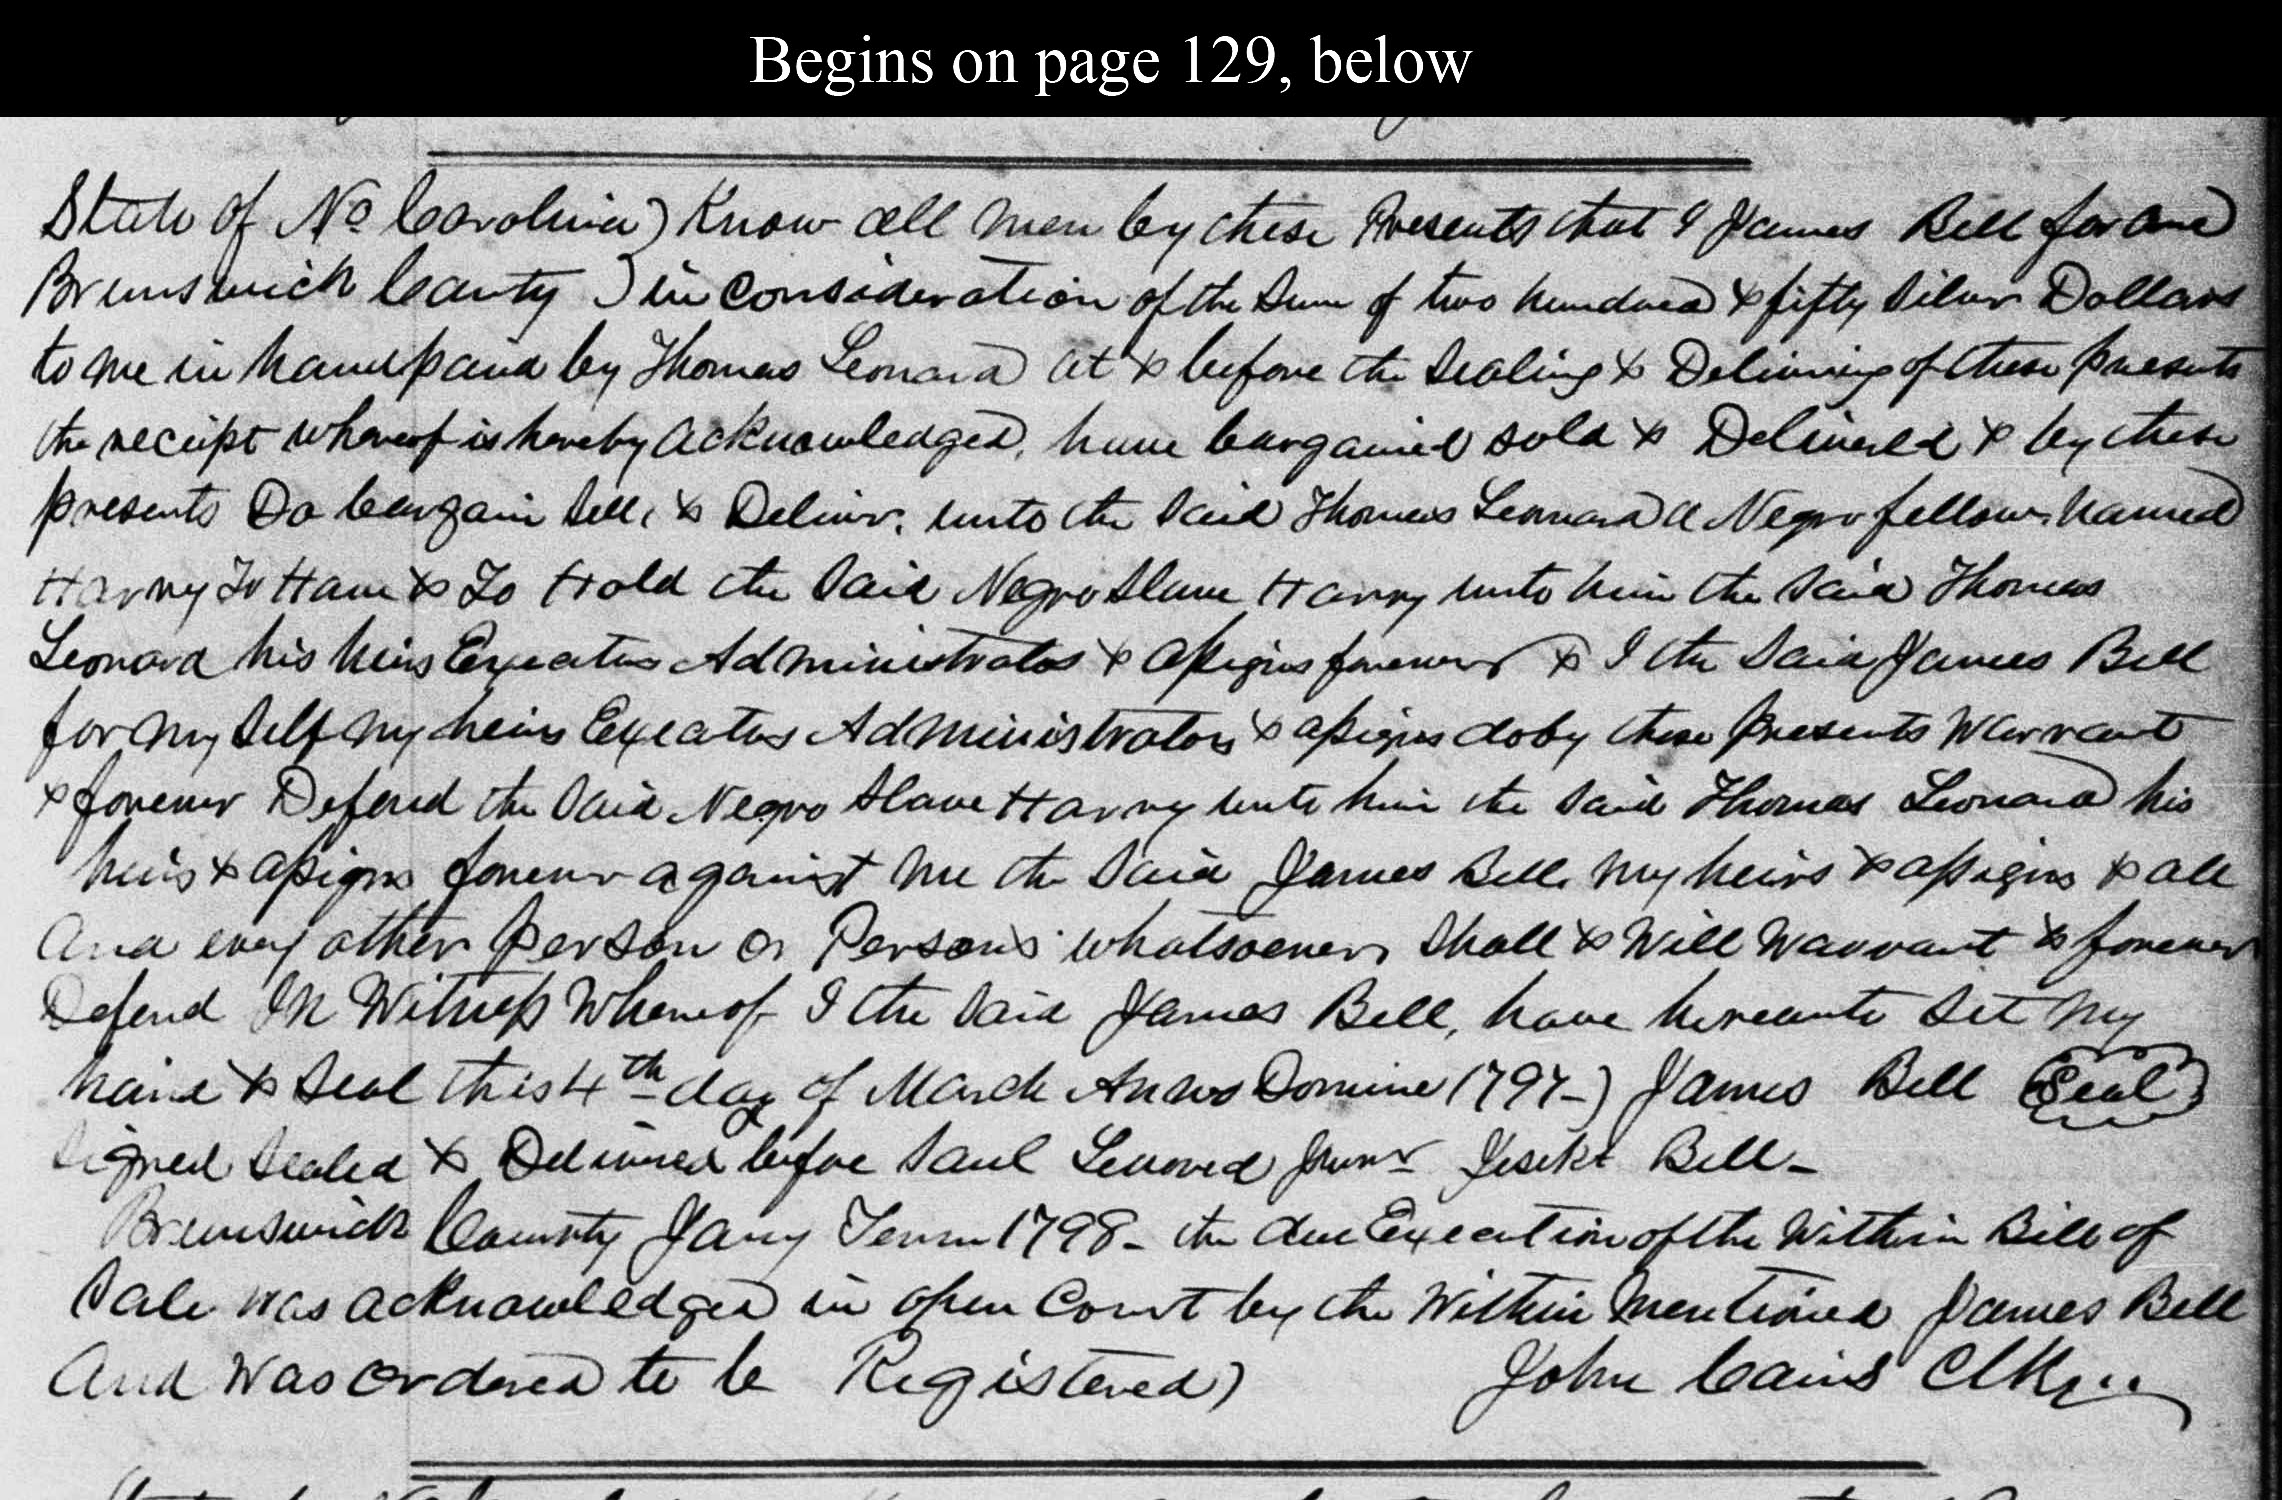 Begins on page 129, below
State of No Carolina) Know all men by these Presents that I James Bell for and
Brunswick County ) in Consideration of the Sum of two hundred & fifty Silver Dollars
to me in hand paid by Thomas Leonard at & before the Sealing & Delivering of these presents
the receipt whereof is hereby acknowledged, have bargained sold & Delivered & by these
presents Do bargain Sell, & Deliver, unto the Said Thomas Leonard a Negro fellow named
Harry To Have & To Hold the Said Negro Slave Harry unto him the Said Thomas
Leonard his heirs Executors Administrators & assigns forever & I the Said James Bell
for my Self my heirs Executors Administrators & assigns do by these Presents Warrant
& forever Defend the Said Negro Slave Harry unto him the Said Thomas Leonard his
heirs & assigns forever against me the Said James Bell my heirs & assigns & all
And every other person or Persons whatsoever Shall & Will Warrant & forever
Defend In Witness Whereof I the Said James Bell, have hereunto Set my
hand & Seal this 4th day of March Anno Domine 1797-) James Bell Seal
Signed Sealed & Delivered before Saul Leonard Junr Bell-
Brunswick County Jany Term 1798- the due Execution of the Within Bill of
Sale was acknowledged in open Court by the Within Mentioned James Bell
And was ordered to be Registered) John Cains Clk